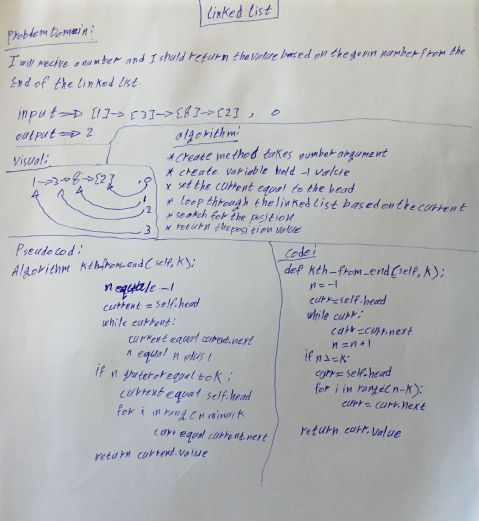 Linked List
Problem Domain:
I will recive a number and I shuld return the value based on the gavin number from the
End of the linked list.
input => [1] -> [3] -> [8] -> [2] , 0
output => 2
algorithm:
* create method takes number argument
* create variable hold -1 value
* set the current equal to the head
* loop through the linked List based on the current
* search for the position
* return the position value
Visual:
1 -> 3 -> 8 -> [2] , 0
1
2
3
Pseudocod:
Algorithm kth_from_end(self, k):
n equale -1
current = self.head
while current:
current equal current.next
n equal n plus 1
if n grater or equal to k:
current equal self.head
for i in rang (n minus k
curr equal current.next
return current.value
Code:
def kth_from_end(self, k):
n = -1
curr = self.head
while curr:
curr = curr.next
n = n+1
if n>=k
curr = self.head
for i in range(n-k):
curr = curr.next
return curr.value